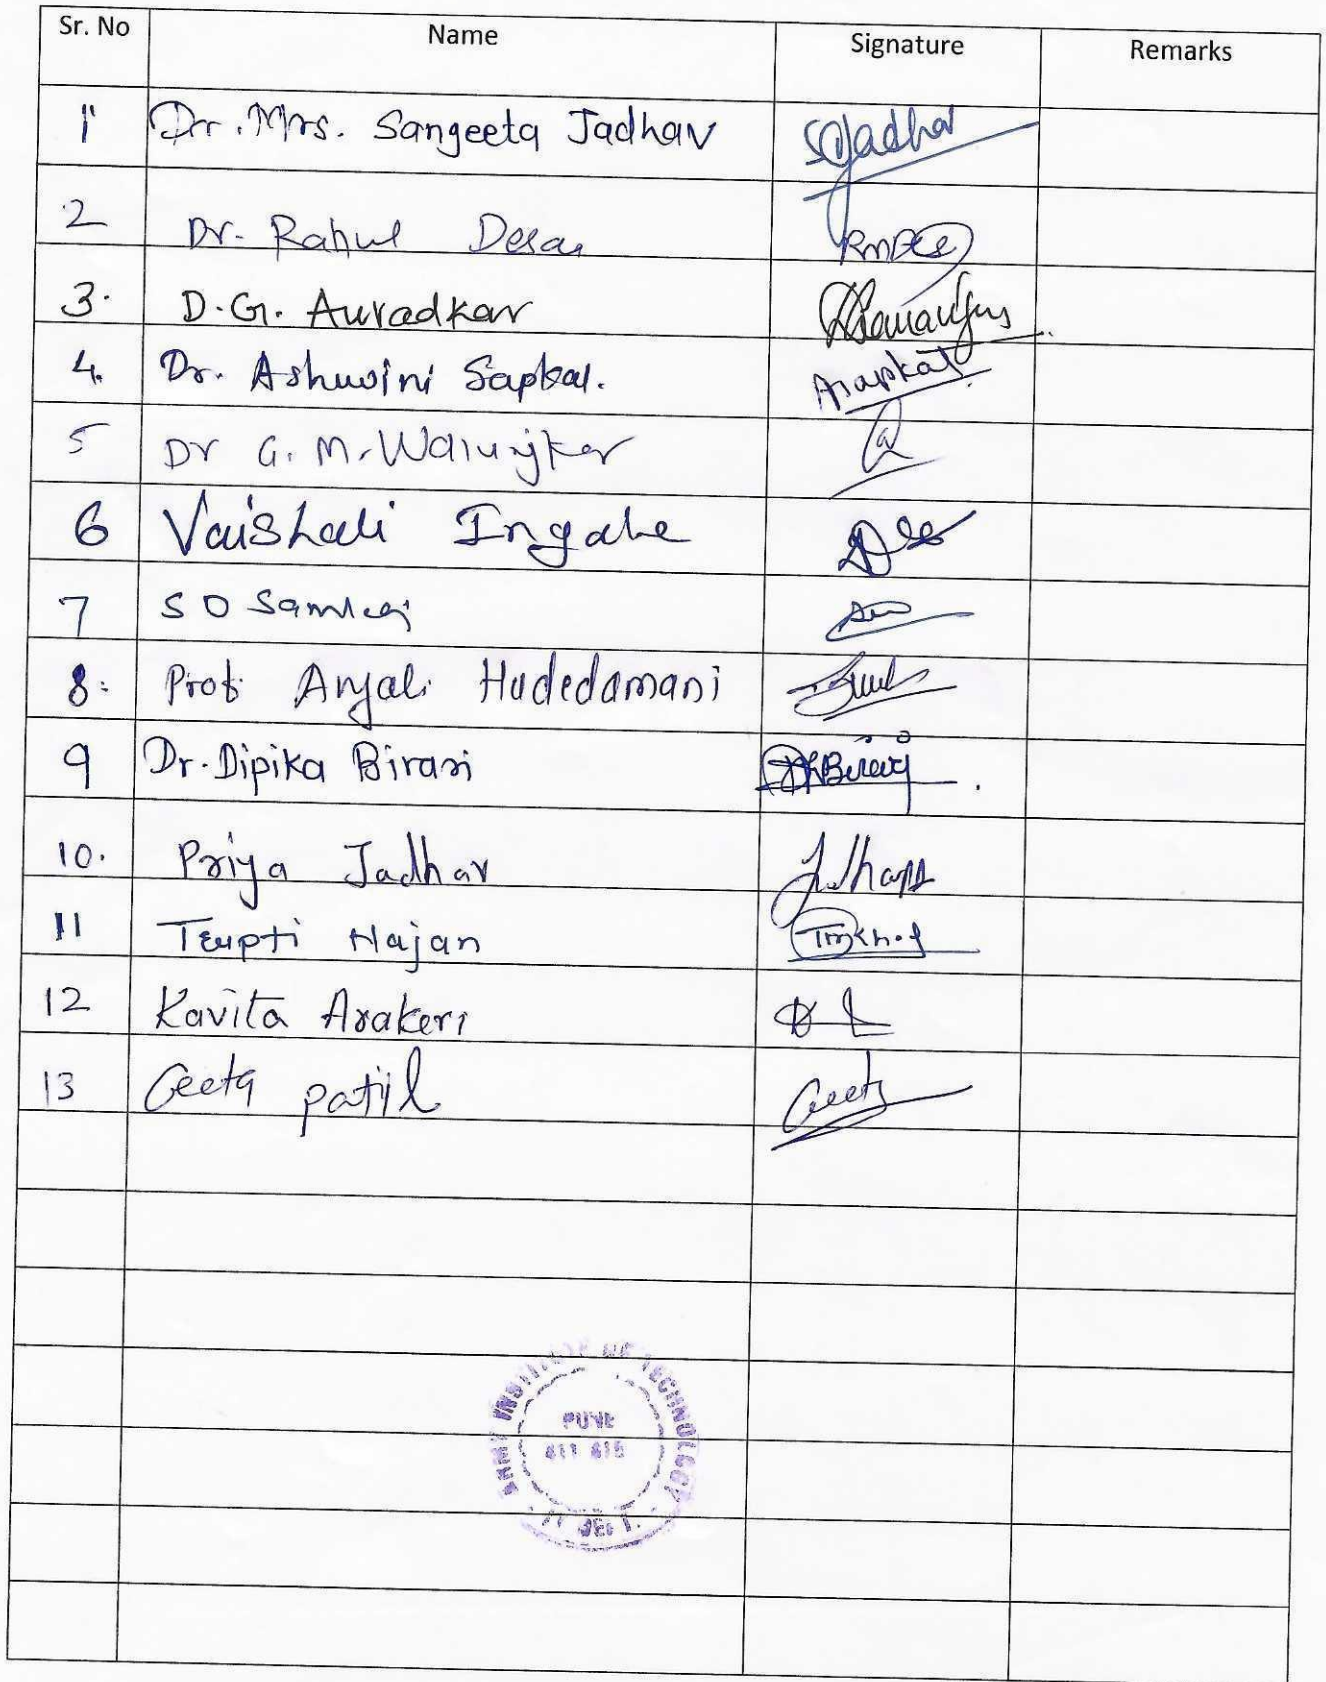 Sr. No Name Signature Remarks
1 Dr. Mrs. Sangeeta Jadhav SJadhav
2 Dr. Rahul Desai
3. D.G. Auradkar
4. Dr. Ashwini Sapkal. Asapkal
5 Dr G. M. Walunjkar
6 Vaishali Ingale
7 S D
8. Prof. Anjali Hudedamani
9 Dr. Dipika Birari DRBirari
10. Priya Jadhav
11 Trupti Hajan
12 Kavita Arakeri
13 Geeta patil Geeta
ARMY INSTITUTE OF TECHNOLOGY
PUNE
411 015
IT DEPT.